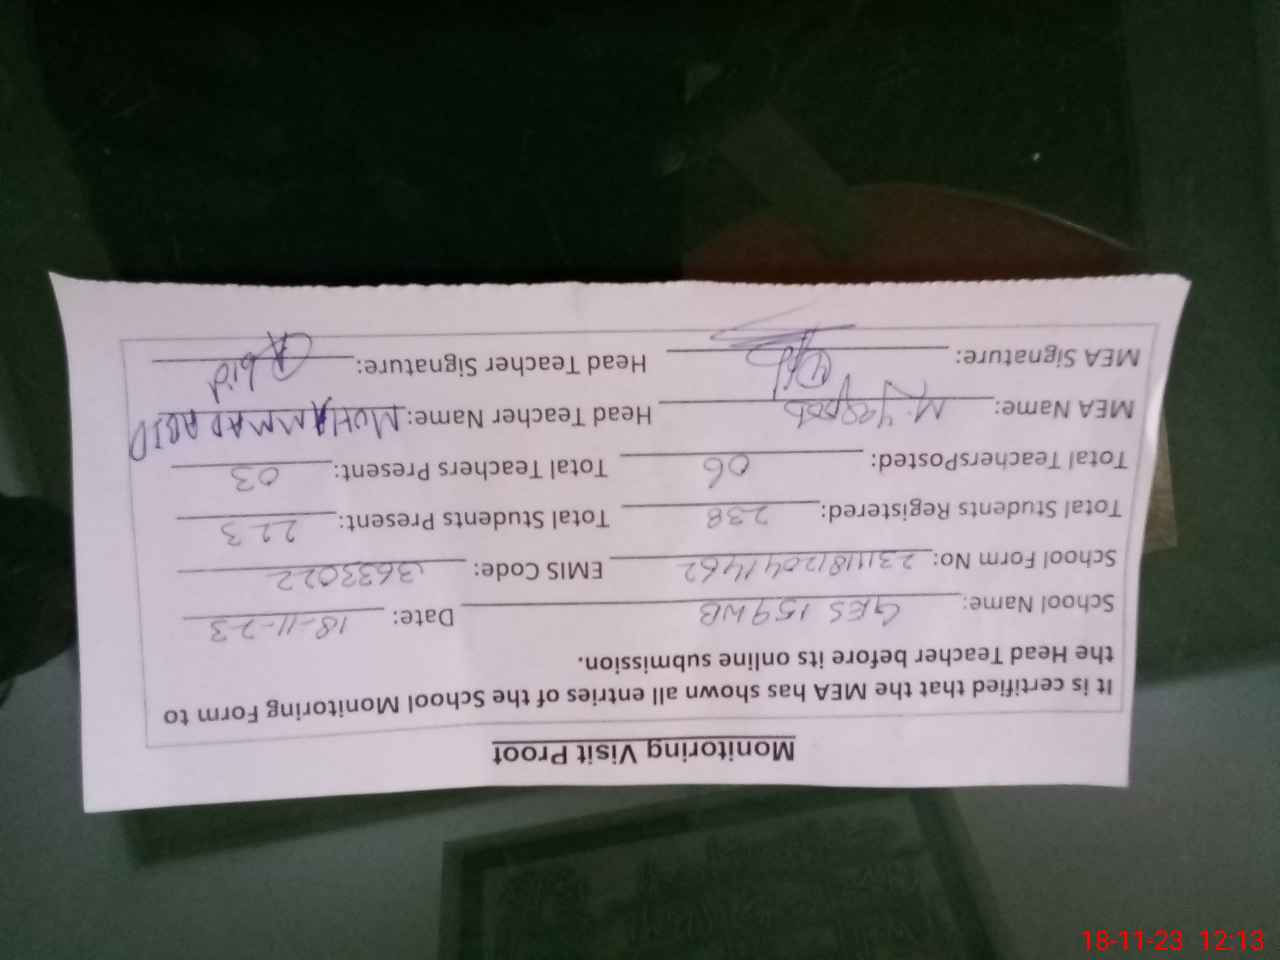 Monitoring Visit Proof
It is certified that the MEA has shown all entries of the School Monitoring Form to
the Head Teacher before its online submission.
School Name: GES 159WB Date: 18-11-23
School Form No: 231118120411462 EMIS Code: 3633022
Total Students Registered: 238 Total Students Present: 223
Total TeachersPosted: 06 Total Teachers Present: 03
MEA Name: M. Head Teacher Name: MOHAMMAD ABID
MEA Signature: Head Teacher Signature: Abid
18-11-23 12:13